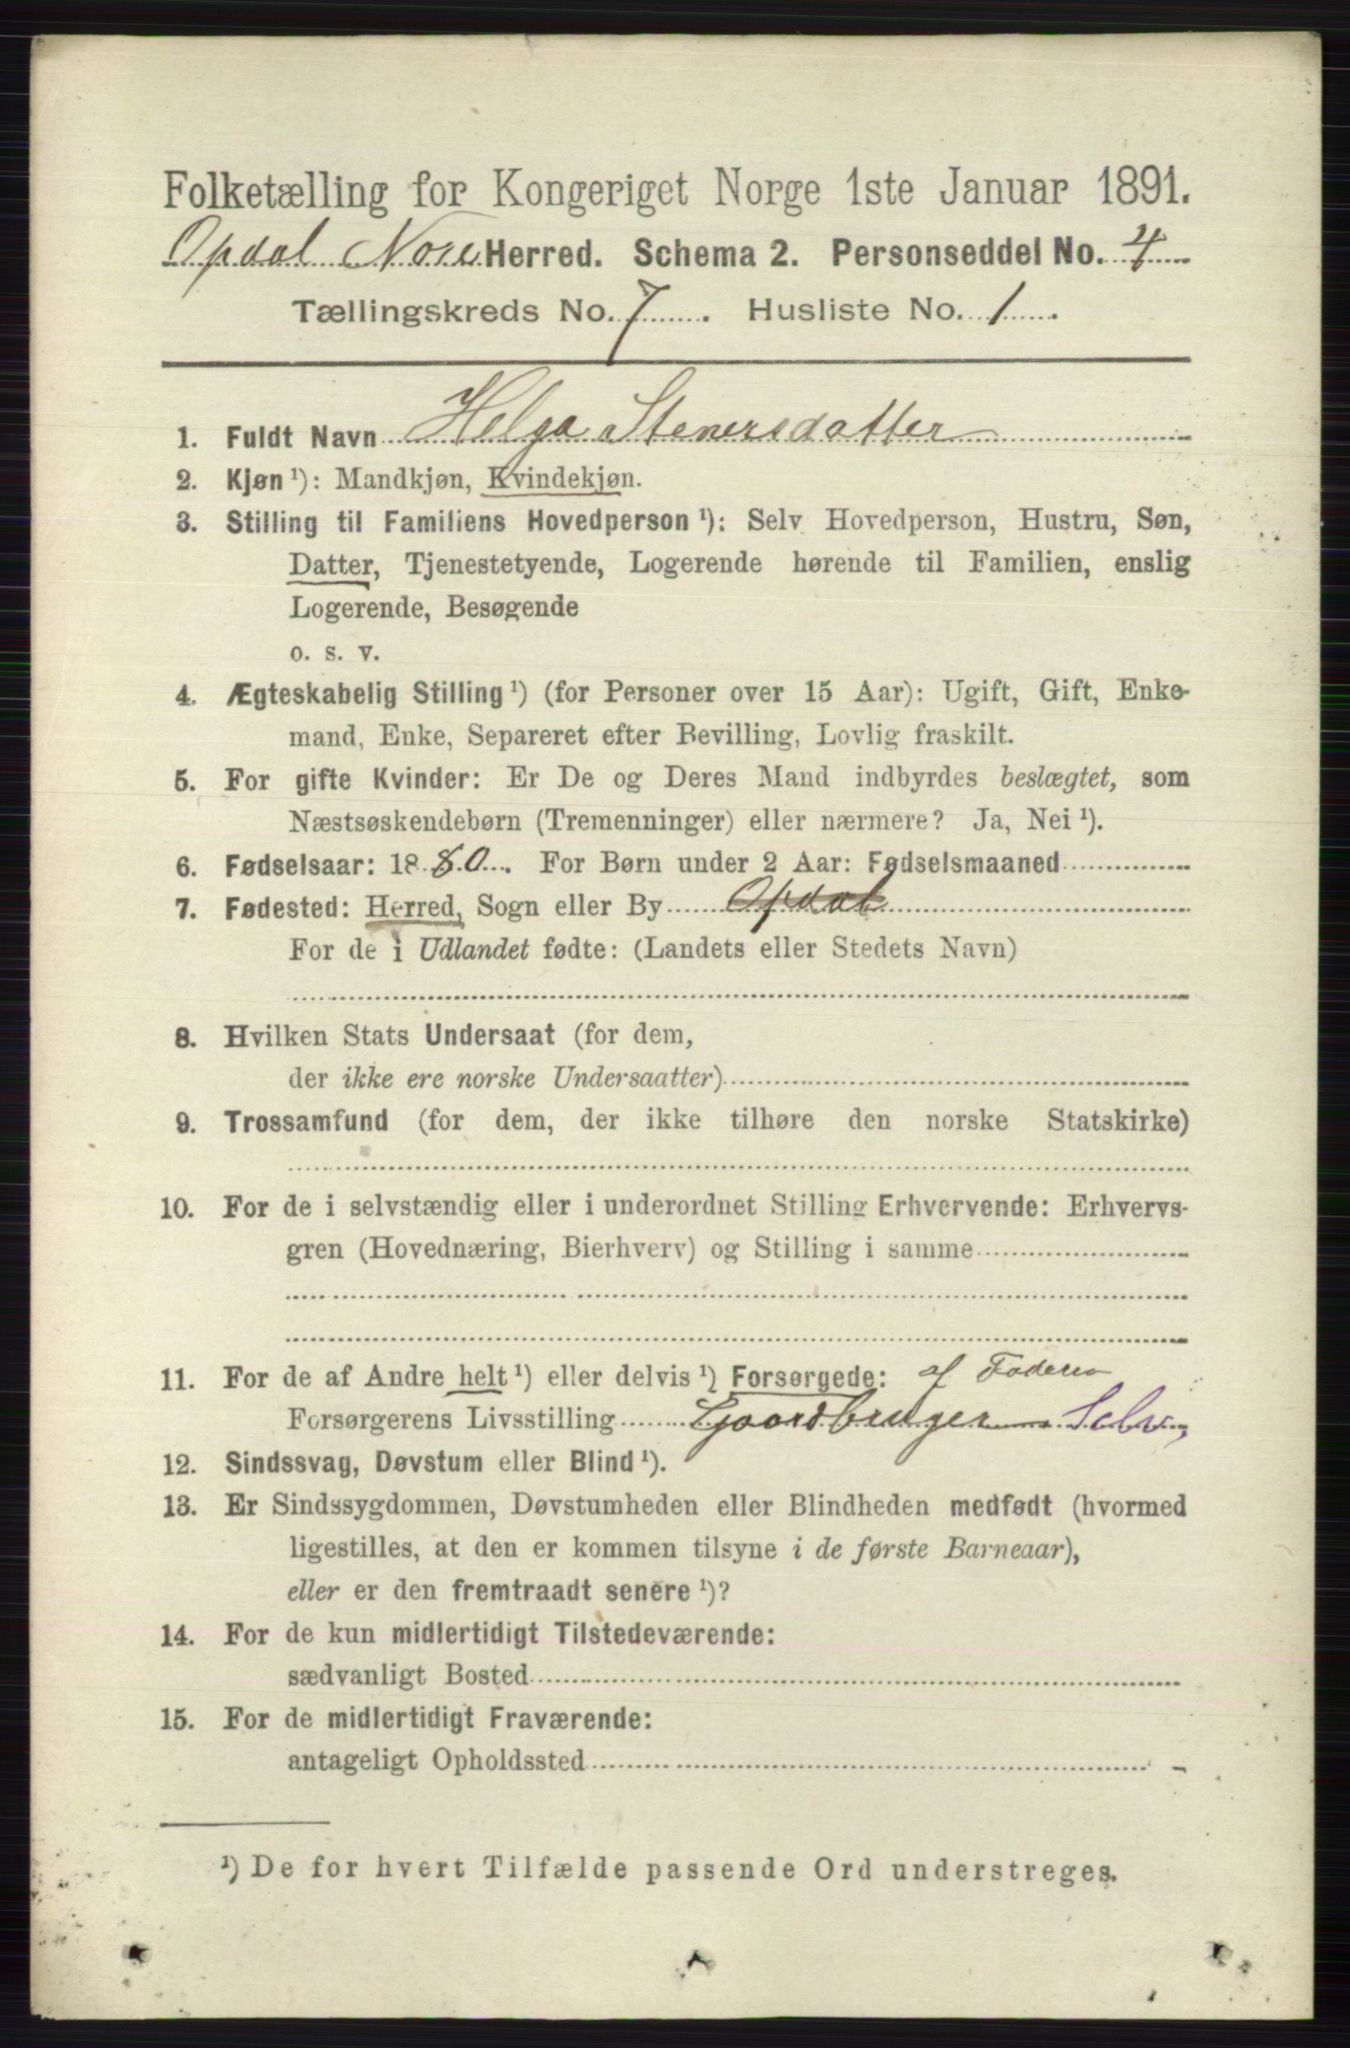 Folketælling for Kongeriget Norge 1ste Januar 1891.
Opdal Nore Herred. Schema 2. Personseddel No. 4
Tællingskreds No. 7. Husliste No. 1.
1. Fuldt Navn Helga Stenersdatter
2. Kjøn ¹): Mandkjøn, Kvindekjøn.
3. Stilling til Familiens Hovedperson ¹): Selv Hovedperson, Hustru, Søn,
Datter, Tjenestetyende, Logerende hørende til Familien, enslig
Logerende, Besøgende
o. s. v.
4. Ægteskabelig Stilling ¹) (for Personer over 15 Aar): Ugift, Gift, Enke-
mand, Enke, Separeret efter Bevilling, Lovlig fraskilt.
5. For gifte Kvinder: Er De og Deres Mand indbyrdes beslægtet, som
Næstsøskendebørn (Tremenninger) eller nærmere? Ja, Nei ¹).
6. Fødselsaar: 1880. For Børn under 2 Aar: Fødselsmaaned
7. Fødested: Herred, Sogn eller By Opdal
For de i Udlandet fødte: (Landets eller Stedets Navn)
8. Hvilken Stats Undersaat (for dem,
der ikke ere norske Undersaatter)
9. Trossamfund (for dem, der ikke tilhøre den norske Statskirke)
10. For de i selvstændig eller i underordnet Stilling Erhvervende: Erhvervs-
gren (Hovednæring, Bierhverv) og Stilling i samme
11. For de af Andre helt ¹) eller delvis ¹) Forsørgede: af Faderen
Forsørgerens Livsstilling Gaardbruger Selv,
12. Sindssvag, Døvstum eller Blind ¹).
13. Er Sindssygdommen, Døvstumheden eller Blindheden medfødt (hvormed
ligestilles, at den er kommen tilsyne i de første Barneaar),
eller er den fremtraadt senere ¹)?
14. For de kun midlertidigt Tilstedeværende:
sædvanligt Bosted
15. For de midlertidigt Fraværende:
antageligt Opholdssted
¹) De for hvert Tilfælde passende Ord understreges.